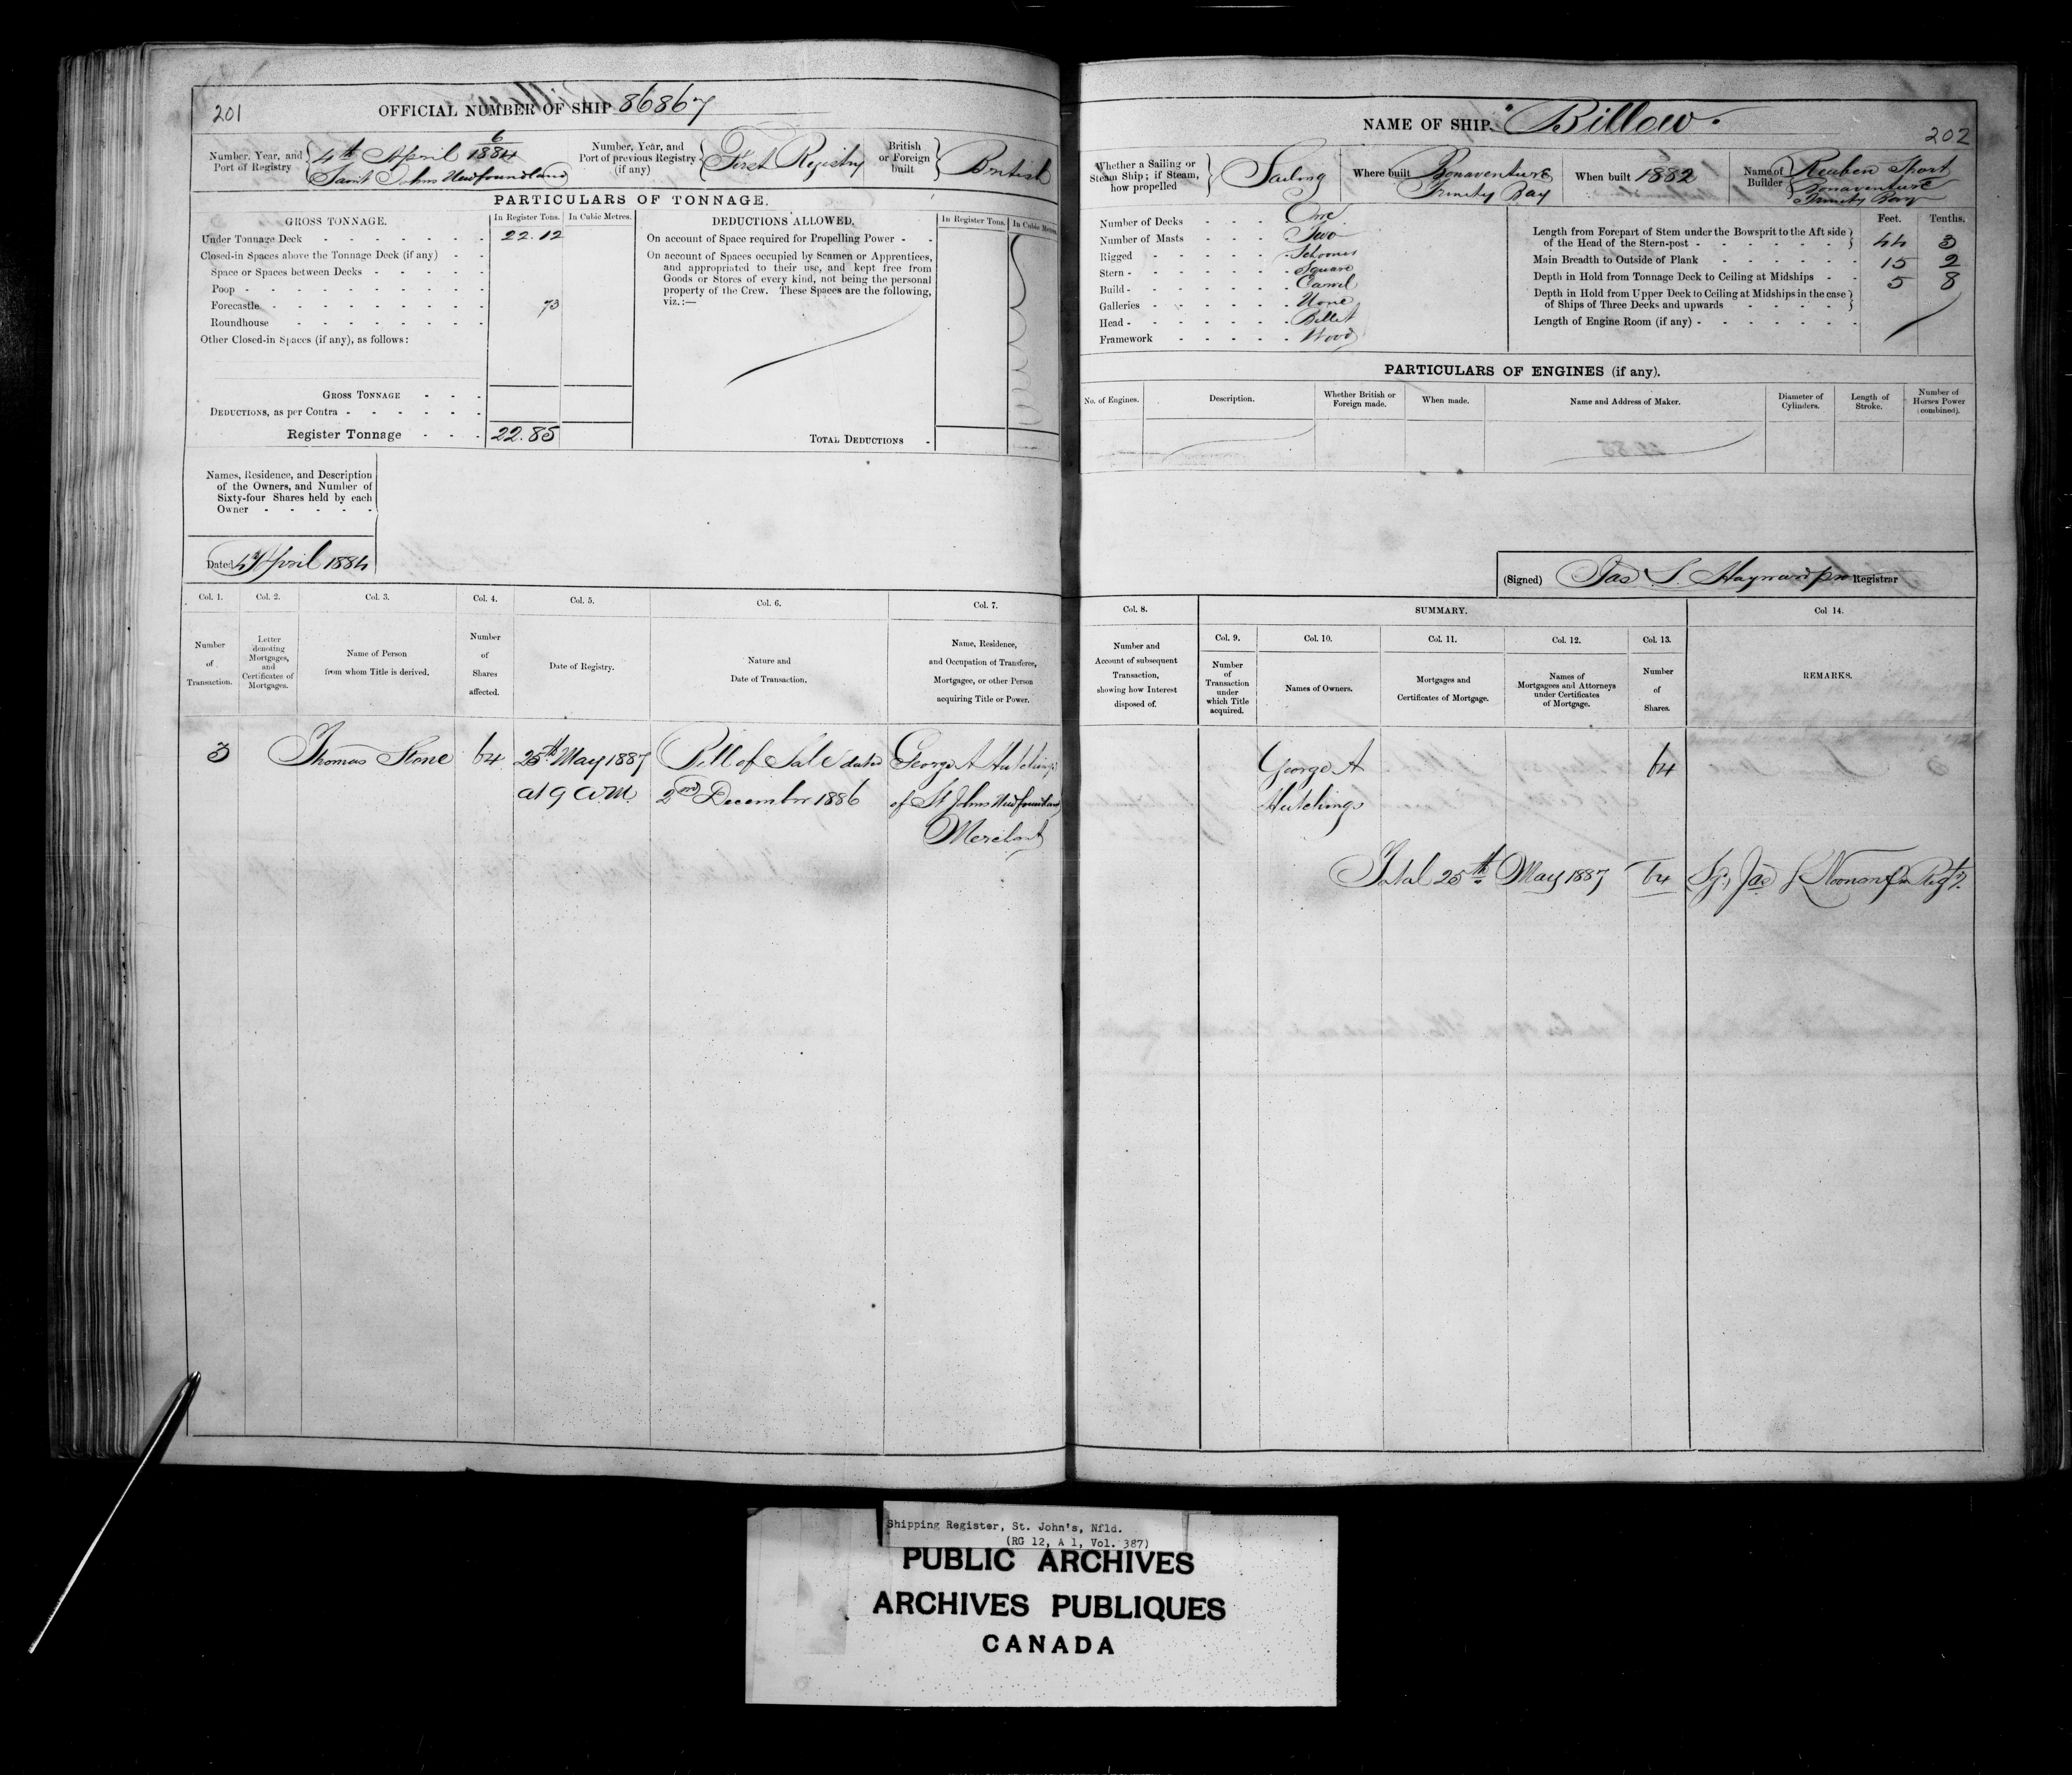 201
OFFICIAL NUMBER OF SHIP 86867
Number, Year, and Port of Registry
6
4th April 1884
Saint Johns Newfoundland
Number, Year, and Port of previous Registry (if any)
First Registry
British or Foreign built
British
PARTICULARS OF TONNAGE.
GROSS TONNAGE.
In Register Tons.
In Cubic Metres.
Under Tonnage Deck 22.12
Closed-in Spaces above the Tonnage Deck (if any)
Space or Spaces between Decks
Poop
Forecastle 73
Roundhouse
Other Closed-in Spaces (if any), as follows:
GROSS TONNAGE
DEDUCTIONS, as per Contra
Register Tonnage 22.85
DEDUCTIONS ALLOWED.
In Register Tons.
In Cubic Metres
On account of Space required for Propelling Power
On account of Spaces occupied by Seamen or Apprentices,
and appropriated to their use, and kept free from
Goods or Stores of every kind, not being the personal
property of the Crew. These Spaces are the following,
viz.:—
TOTAL DEDUCTIONS
Names, Residence, and Description
of the Owners, and Number of
Sixty-four Shares held by each
Owner
Dated 4th April 1884
Col. 1.
Number
of
Transaction.
Col. 2.
Letter
denoting
Mortgages,
and
Certificates of
Mortgages.
Col. 3.
Name of Person
from whom Title is derived.
Col. 4.
Number
of
Shares
affected.
Col. 5.
Date of Registry.
Col. 6.
Nature and
Date of Transaction.
Col. 7.
Name, Residence,
and Occupation of Transferee,
Mortgagee, or other Person
acquiring Title or Power.
3
Thomas Stone
64
25th May 1887
at 9 a.m.
Bill of Sale dated
2nd December 1886
George A Hutchings
of St Johns Newfoundland
Merchant
NAME OF SHIP. "Billow.
202
Whether a Sailing or
Steam Ship; if Steam,
how propelled
Sailing
Where built
Bonaventure
Trinity Bay
When built 1882
Name of Builder
Reuben Short
Bonaventure
Trinity Bay
Number of Decks One
Number of Masts Two
Rigged Schooner
Stern Square
Build Carvel
Galleries None
Head Billet
Framework Wood
Feet. Tenths.
Length from Forepart of Stem under the Bowsprit to the Aft side
of the Head of the Stern-post 44 3
Main Breadth to Outside of Plank 15 2
Depth in Hold from Tonnage Deck to Ceiling at Midships 5 8
Depth in Hold from Upper Deck to Ceiling at Midships in the case
of Ships of Three Decks and upwards
Length of Engine Room (if any)
PARTICULARS OF ENGINES (if any).
No. of Engines.
Description.
Whether British or
Foreign made.
When made.
Name and Address of Maker.
Diameter of
Cylinders.
Length of
Stroke.
Number of
Horses Power
(combined).
(Signed) Jas S Hayward pro Registrar
Col. 8.
Number and
Account of subsequent
Transaction,
showing how Interest
disposed of.
SUMMARY.
Col. 9.
Number
of
Transaction
under
which Title
acquired.
Col. 10.
Names of Owners.
Col. 11.
Mortgages and
Certificates of Mortgage.
Col. 12.
Names of
Mortgagees and Attorneys
under Certificates
of Mortgage.
Col. 13.
Number
of
Shares.
Col 14.
REMARKS.
George A
Hutchings
64
Total 25th May 1887 64
Jas Noonan
Shipping Register, St. John's, Nfld.
(RG 12, A 1, Vol. 387)
PUBLIC ARCHIVES
ARCHIVES PUBLIQUES
CANADA